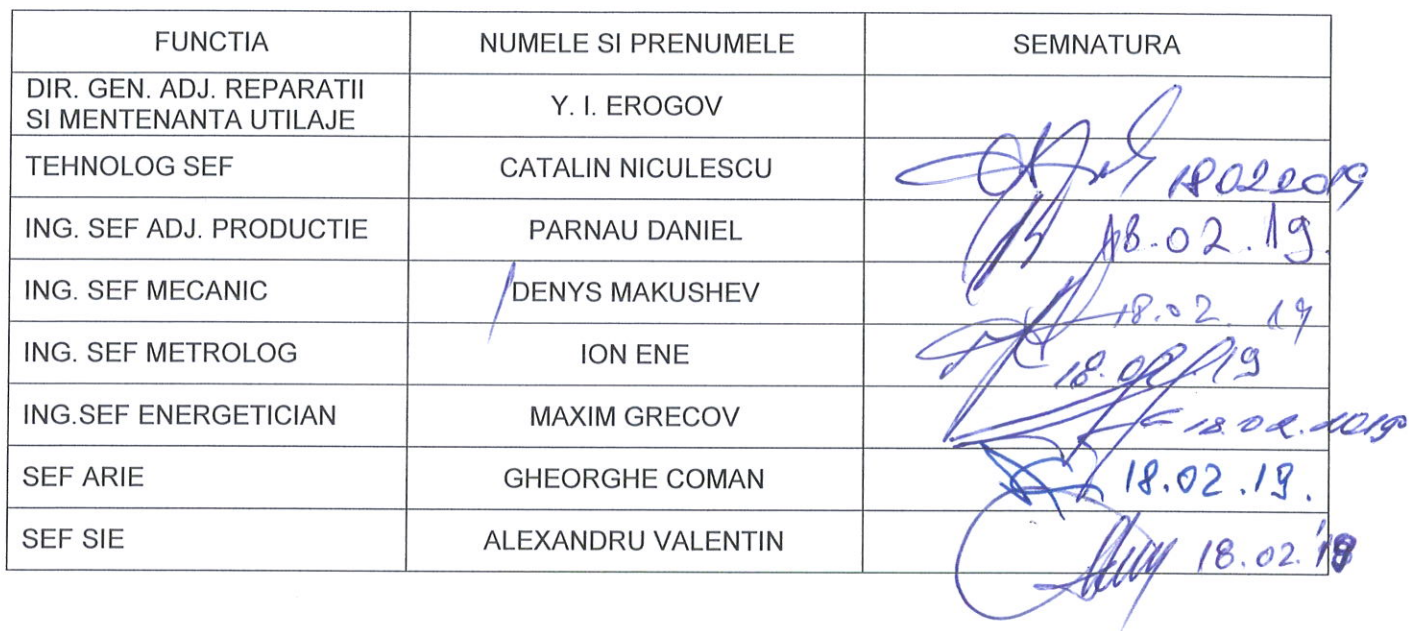 FUNCTIA NUMELE SI PRENUMELE SEMNATURA
DIR. GEN. ADJ. REPARATII
SI MENTENANTA UTILAJE Y. I. EROGOV
TEHNOLOG SEF CATALIN NICULESCU 18022019
ING. SEF ADJ. PRODUCTIE PARNAU DANIEL 18.02.19.
ING. SEF MECANIC DENYS MAKUSHEV 18.02. 19
ING. SEF METROLOG ION ENE 18.02.19
ING.SEF ENERGETICIAN MAXIM GRECOV 18.02.2019
SEF ARIE GHEORGHE COMAN 18.02.19.
SEF SIE ALEXANDRU VALENTIN 18.02.